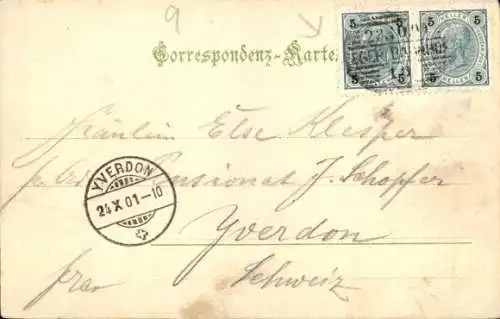 9
5 5 5 5
HELLER HELLER
Correspondenz-Karte
Fräulein Else Klesper
Pensionat J. Schopfer
YVERDON
24 X 01-10
Yverdon
Schweiz